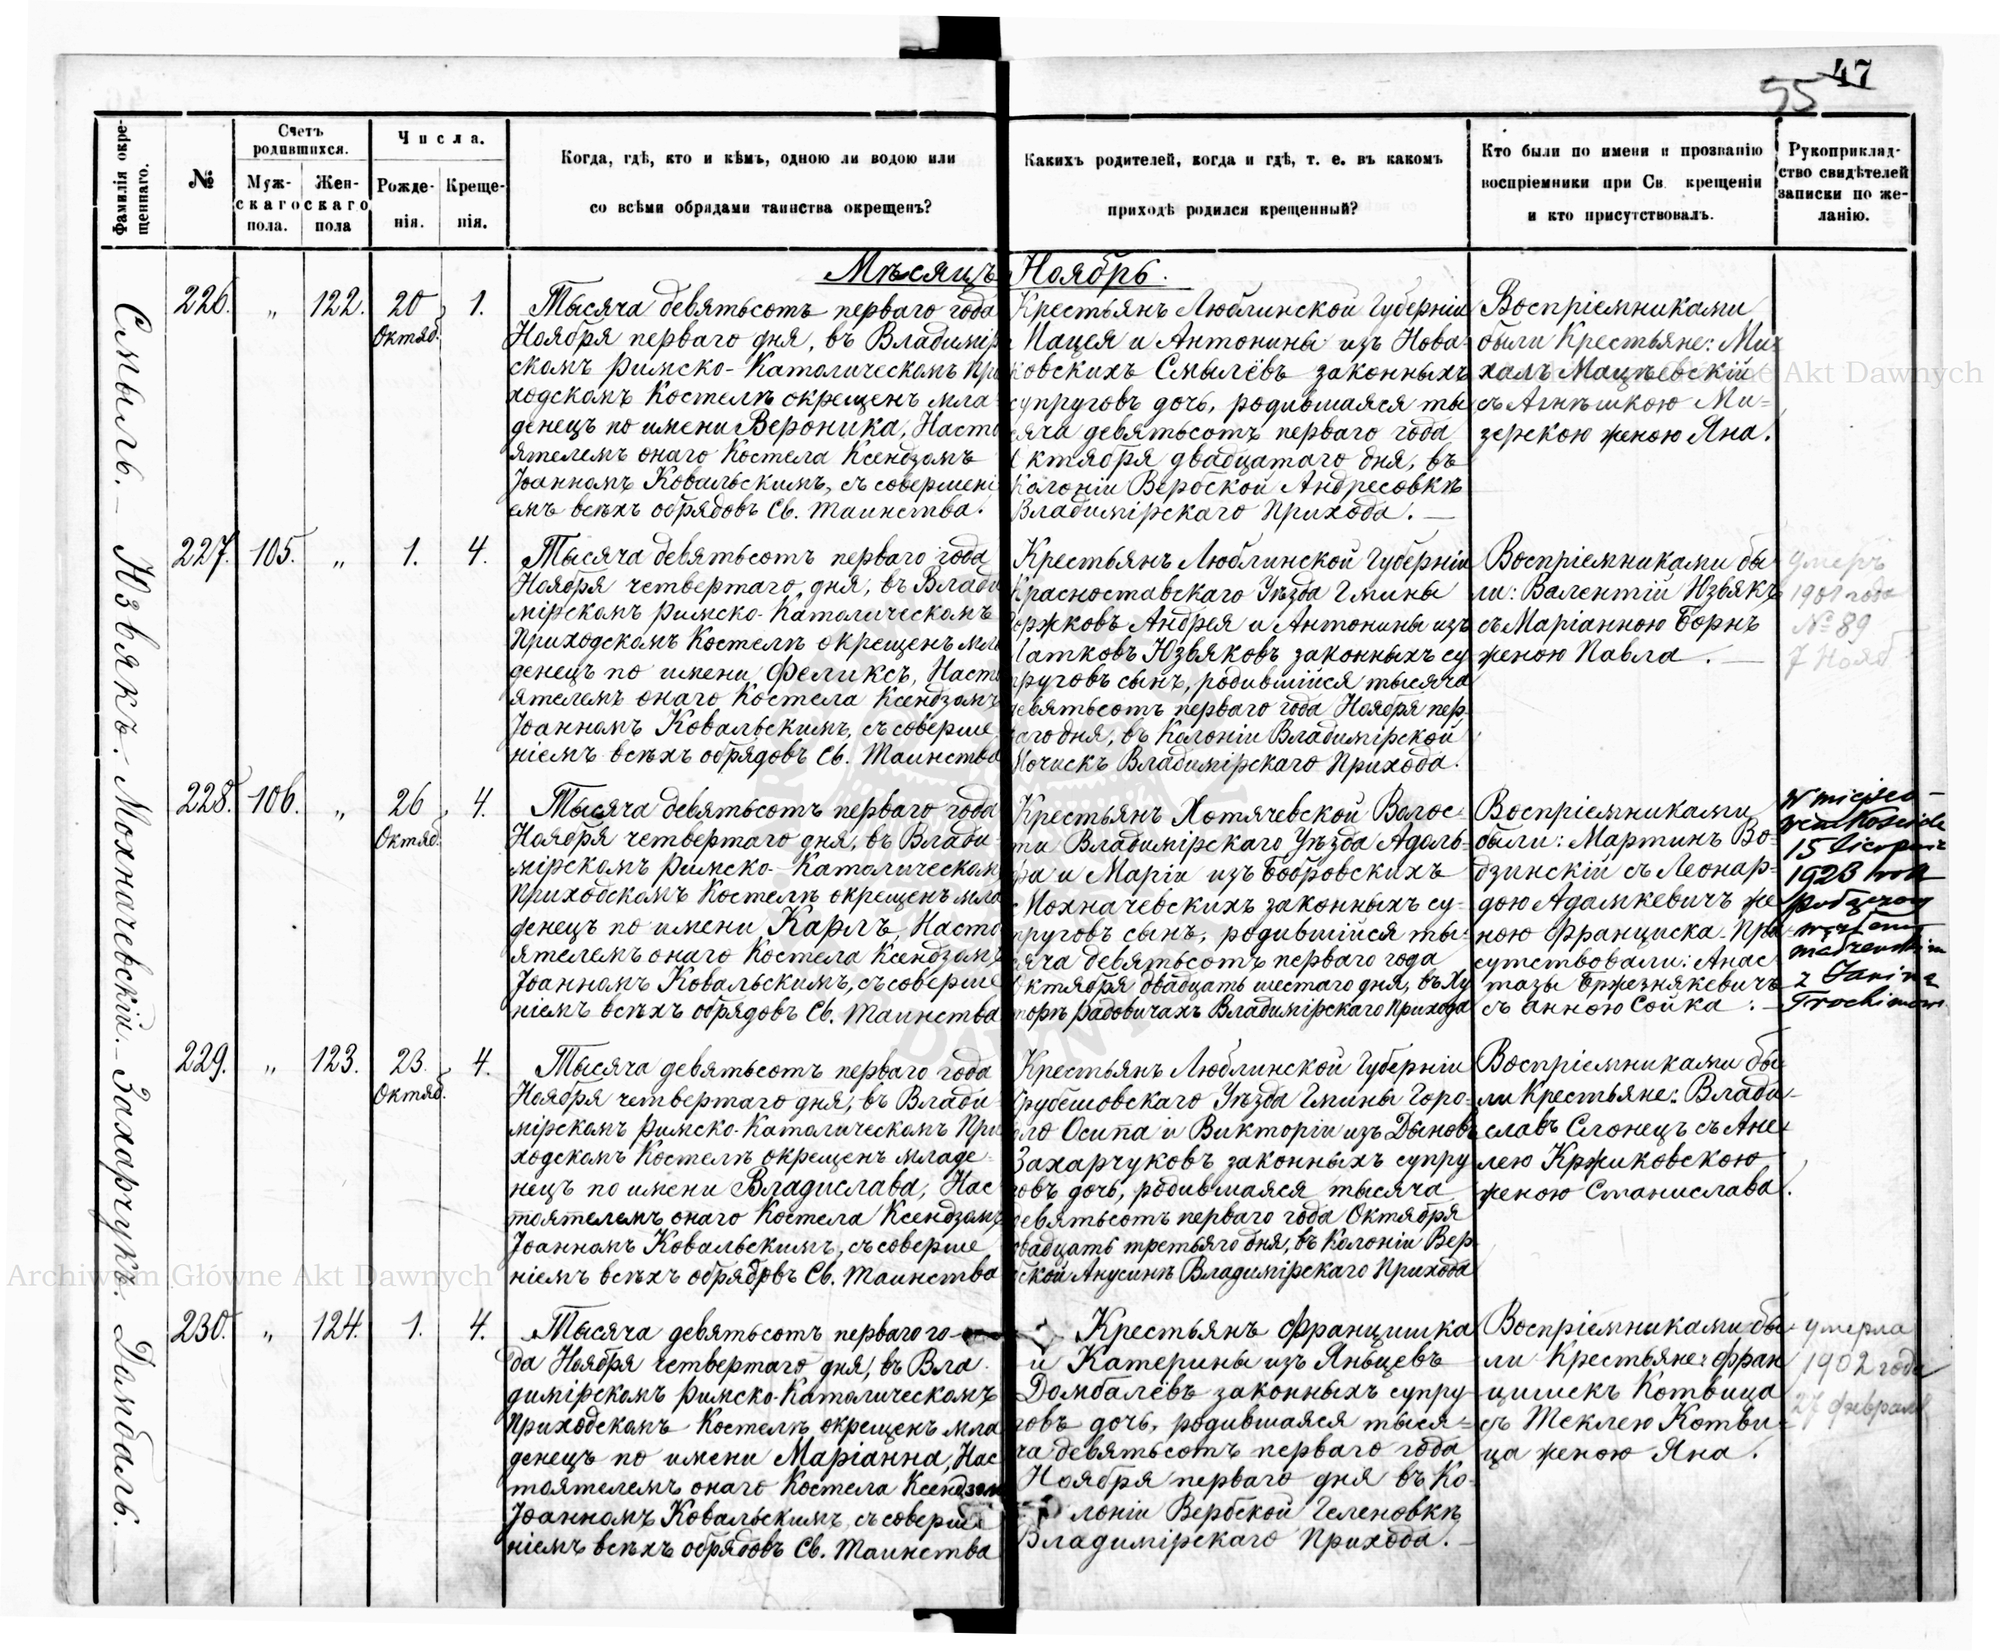 47
55
Фамилія окре-
щеннаго.
№
Счетъ
родившихся.
Муж-
скаго
пола.
Жен-
скаго
пола
Числа.
Рожде-
нія.
Креще-
нія.
Когда, гдѣ, кто и кѣмъ, одною ли водою или
со всѣми обрядами таинства окрещенъ?
Какихъ родителей, когда и гдѣ, т. е. въ какомъ
приходѣ родился крещенный?
Кто были по имени и прозванію
воспріемники при Св. крещеніи
и кто присутствовалъ.
Рукоприклад-
ство свидѣтелей
записки по же-
ланію.
Мѣсяцъ Ноябрь.
Смыль. —
226.
„
122.
20
Октяб.
1.
Тысяча девятьсотъ перваго года
Ноября перваго дня, въ Владимір
скомъ Римско-Католическомъ При
ходскомъ Костелѣ окрещенъ мла-
денецъ по имени Вероника, Насто
ятелемъ онаго Костела Ксендзомъ
Іоанномъ Ковальскимъ, съ совершені
емъ всѣхъ обрядовъ Св. Таинства.
Крестьянъ Люблинской Губерніи
Мацея и Антонины изъ Нова-
ковскихъ Смылёвъ законныхъ
супруговъ дочь, родившаяся ты
сяча девятьсотъ перваго года
Октября двадцатаго дня, въ
Колоніи Вербской Андресовкѣ
Владимірскаго Прихода. —
Воспріемниками
были Крестьяне: Ми-
халъ Мацѣевскій
съ Агнѣшкою Ми-
зерскою женою Яна.
Юзьвякъ. —
227.
105.
„
1.
4.
Тысяча девятьсотъ перваго года
Ноября четвертаго дня, въ Влади
мірскомъ Римско-Католическомъ
Приходскомъ Костелѣ окрещенъ мла
денецъ по имени Феликсъ, Насто
ятелемъ онаго Костела Ксендзомъ
Іоанномъ Ковальскимъ, съ соверше
ніемъ всѣхъ обрядовъ Св. Таинства
Крестьянъ Люблинской Губерніи
Красноставскаго Уѣзда Гмины
Горжковъ Андрея и Антонины изъ
Латковъ Юзвяковъ законныхъ су
пруговъ сынъ, родившійся тысяча
девятьсотъ перваго года Ноября пер-
ваго дня, въ Колоніи Владимірской
Почискъ Владимірскаго Прихода.
Воспріемниками бы
ли: Валентій Юзвякъ
съ Маріанною Борнъ
женою Павла. —
умеръ
1901 года
№ 89
7 Нояб
Мохначевскій. —
228.
106.
„
26
Октяб.
4.
Тысяча девятьсотъ перваго года
Ноября четвертаго дня, въ Влади-
мірскомъ Римско-Католическомъ
Приходскомъ Костелѣ окрещенъ мла
денецъ по имени Карлъ, Насто
ятелемъ онаго Костела Ксендзомъ
Іоанномъ Ковальскимъ, съ соверше
ніемъ всѣхъ обрядовъ Св. Таинства
Крестьянъ Хотячевской Волос-
ти Владимірскаго Уѣзда Адоль-
фа и Маріи изъ Бобровскихъ
Мохначевскихъ законныхъ су-
пруговъ сынъ, родившійся ты-
сяча девятьсотъ перваго года
Октября двадцать шестаго дня, въ Ху
торѣ Радовичахъ Владимірскаго Прихода
Воспріемниками
были: Мартинъ Во-
дзинскій съ Леонар-
дою Адамкевичъ же
ною Франциска. При
сутствовали: Анас
тазы Бржезнякевичъ
съ Анною Сойка. —
W miejsco-
wym Kościele
15 sierpnia
1923 rok
małżeński
z Janiną
Захарчукъ.
229.
„
123.
23.
Октяб.
4.
Тысяча девятьсотъ перваго года
Ноября четвертаго дня, въ Влади-
мірскомъ Римско-Католическомъ При
ходскомъ Костелѣ окрещенъ младе-
нецъ по имени Владислава, Нас
тоятелемъ онаго Костела Ксендзомъ
Іоанномъ Ковальскимъ, съ соверше
ніемъ всѣхъ обрядовъ Св. Таинства
Крестьянъ Люблинской Губерніи
Грубешовскаго Уѣзда Гмины Горо-
дло Осипа и Викторіи изъ Дыновъ
Захарчуковъ законныхъ супру
говъ дочь, родившаяся тысяча
девятьсотъ перваго года Октября
двадцать третьяго дня, въ Колоніи Вер-
бской Анусинѣ Владимірскаго Прихода
Воспріемниками бы
ли Крестьяне: Влади-
славъ Слонецъ съ Ане-
лею Кржиковскою
женою Станислава.
Дамбаль. —
230.
„
124.
1.
4.
Тысяча девятьсотъ перваго го-
да Ноября четвертаго дня, въ Вла-
димірскомъ Римско-Католическомъ
Приходскомъ Костелѣ окрещенъ мла
денецъ по имени Маріанна, Нас
тоятелемъ онаго Костела Ксендзом
Іоанномъ Ковальскимъ, съ соверше
ніемъ всѣхъ обрядовъ Св. Таинства
Крестьянъ Францишка
и Катерины изъ Яньцевъ
Домбалёвъ законныхъ супру
говъ дочь, родившаяся тыся-
ча девятьсотъ перваго года
Ноября перваго дня въ Ко-
лоніи Вербской Геленовкѣ
Владимірскаго Прихода. —
Воспріемниками бы-
ли Крестьяне: Фран
цишекъ Котвица
съ Теклею Котви-
ца женою Яна.
умерла
1902 года
27 февраля
Archiwum Główne Akt Dawnych
Główne Akt Dawnych